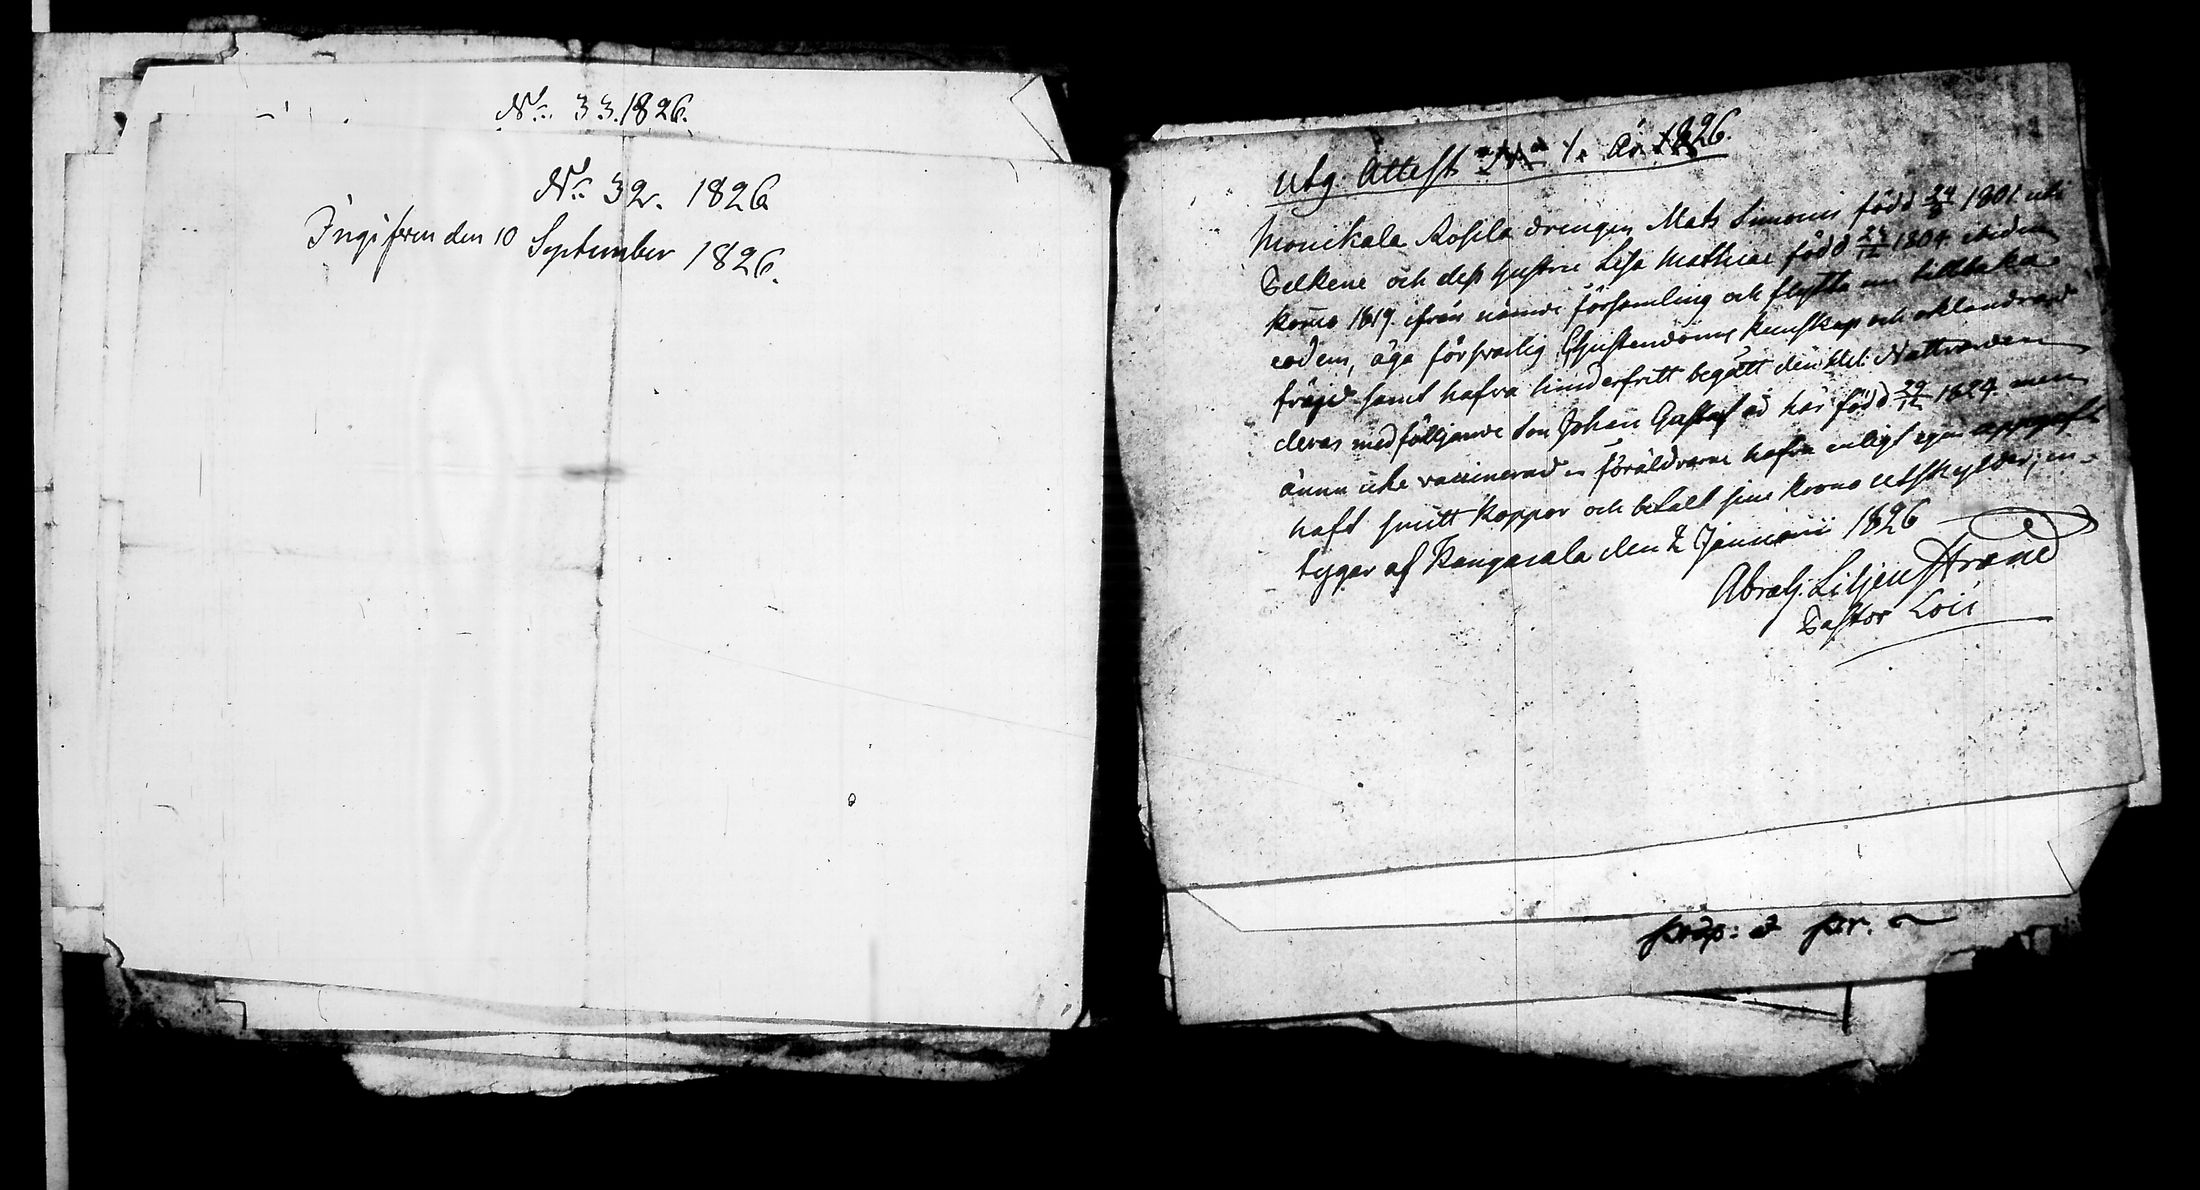 No. 33. 1826.
No. 32. 1826
Ingifven den 10 September 1826.
Utg. Attest No 1. År 1826.
Monikala Rosila drengen Mats Simonis född 24/8 1801. uti
Pelkene och dess hustru Lisa Mathiae född 24/12 1804. ibidem
komna 1819. ifrån nämde församling och flytta nu tillbaka
eodem, äga försvarlig Christendoms kunskap och oklandrad
fräjd samt hafva hinderfritt begått den Hel. Nattvarden
deras medföljande Son Johan Gustaf är här född 29/12 1824 men
ännu icke vaccinerad, föräldrarne hafva enligt egen uppgift
haft smitt koppor och betalt sine krono utskylder; in-
tygar af Kangasala den 2 Januarii 1826
Abrah. Liljenstrand
Pastor Loci